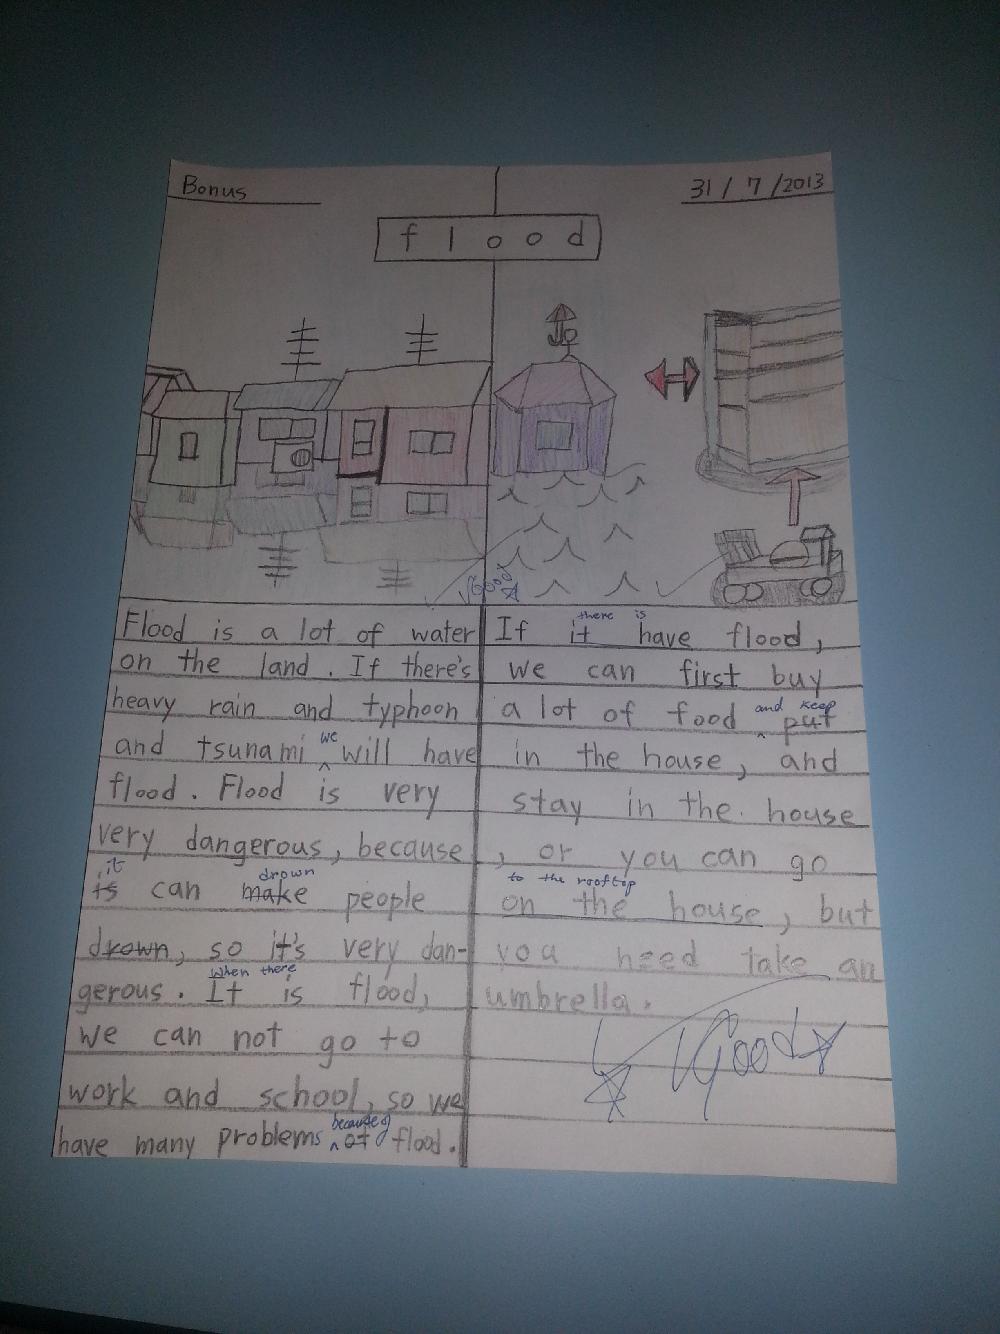 Bonus
31 / 7 / 2013
flood
Good
Flood is a lot of water
on the land. If there's
heavy rain and typhoon
we
and tsunami will have
flood. Flood is very
very dangerous, because
it drown
is can make people
drown, so it's very dan-
when there
gerous. It is flood,
we can not go to
work and school, so we
because of
have many problems of flood.
there is
If it have flood,
we can first buy
and keep
a lot of food put
in the house, and
stay in the house
, or you can go
to the rooftop
on the house, but
you need take an
umbrella.
Good